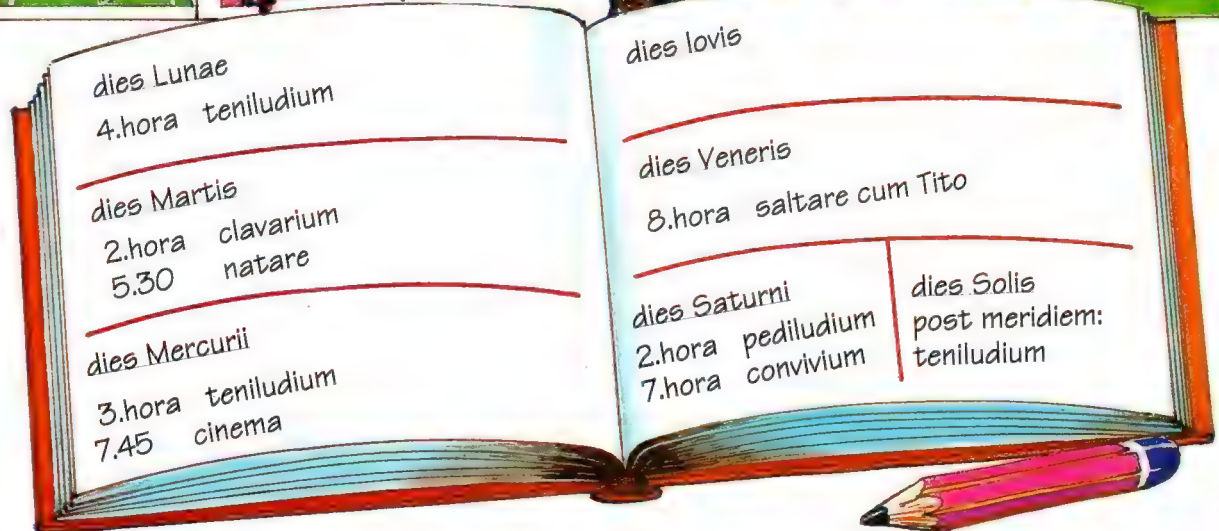 dies Lunae
4.hora teniludium
dies Martis
2.hora clavarium
5.30 natare
dies Mercurii
3.hora teniludium
7.45 cinema
dies Iovis
dies Veneris
8.hora saltare cum Tito
dies Saturni
2.hora pediludium
7.hora convivium
dies Solis
post meridiem:
teniludium